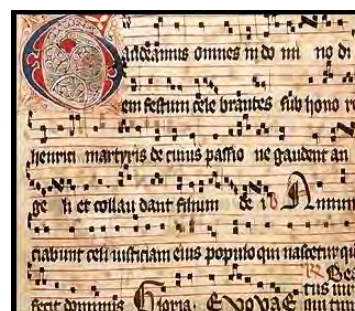 Gaudeamus omnes in do mi no di
em festum cele brantes sub hono r
henrici martyris de cuius passio ne gaudent an
ge li et collau dant filium de i Annun
ciabunt celi iusticiam eius populo qui nascetur qu
fecit dominus Gloria. Evovae